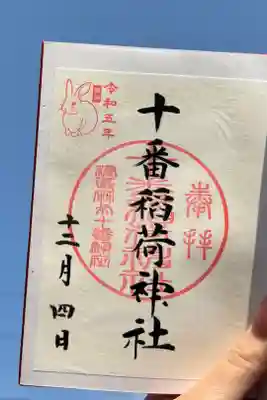 奉拝
十番稲荷神社
令和五年
十二月四日